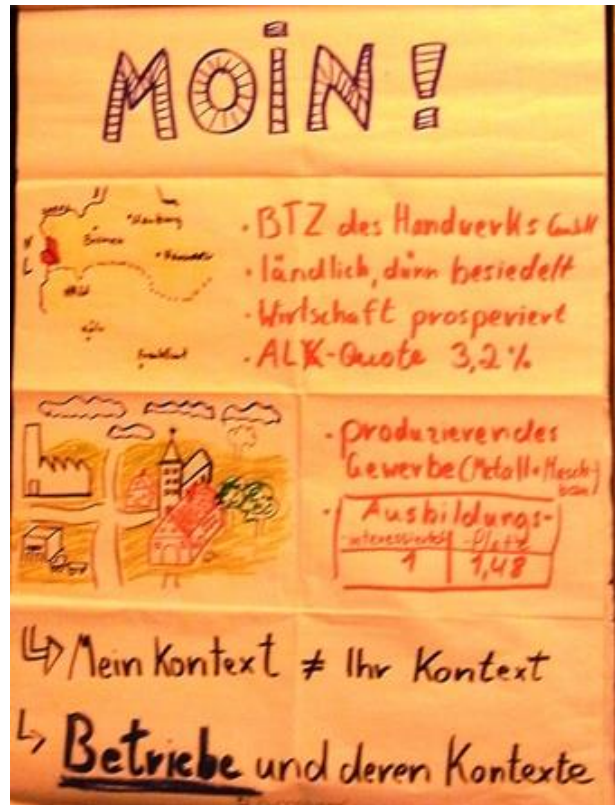 MOIN!
Hamburg
Bremen
Hannover
N
L
Köln
Frankfurt
· BTZ des Handwerks GmbH
· ländlich, dünn besiedelt
· Wirtschaft prosperiert
· ALK-Quote 3,2%
· produzierendes
Gewerbe (Metall+Masch.
bau)
· Ausbildungs-
-interessierte -plätze
1 1,48
↳ Mein Kontext ≠ Ihr Kontext
↳ Betriebe und deren Kontexte